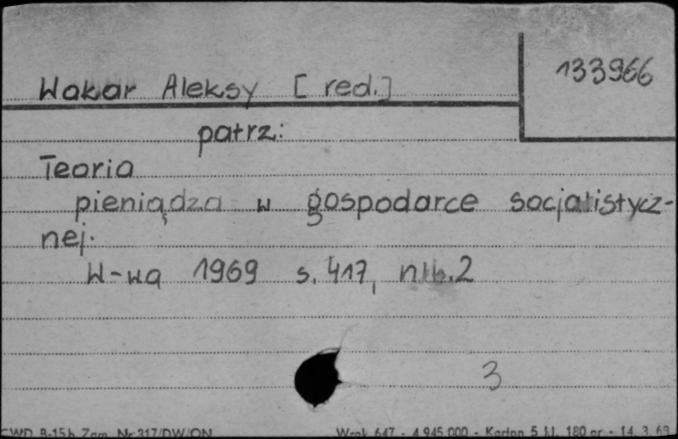 133966
Wakar Aleksy [red.]
patrz:
Teoria
pieniądza w gospodarce socjalistycz-
nej.
W-wa 1969 s. 417, nlb. 2
3
CWD B-15b Zam. Nr 317/DW/ON Wrok 647 - 4 945 000 - Karton 5 kl. 180 gr. - 14.3.69